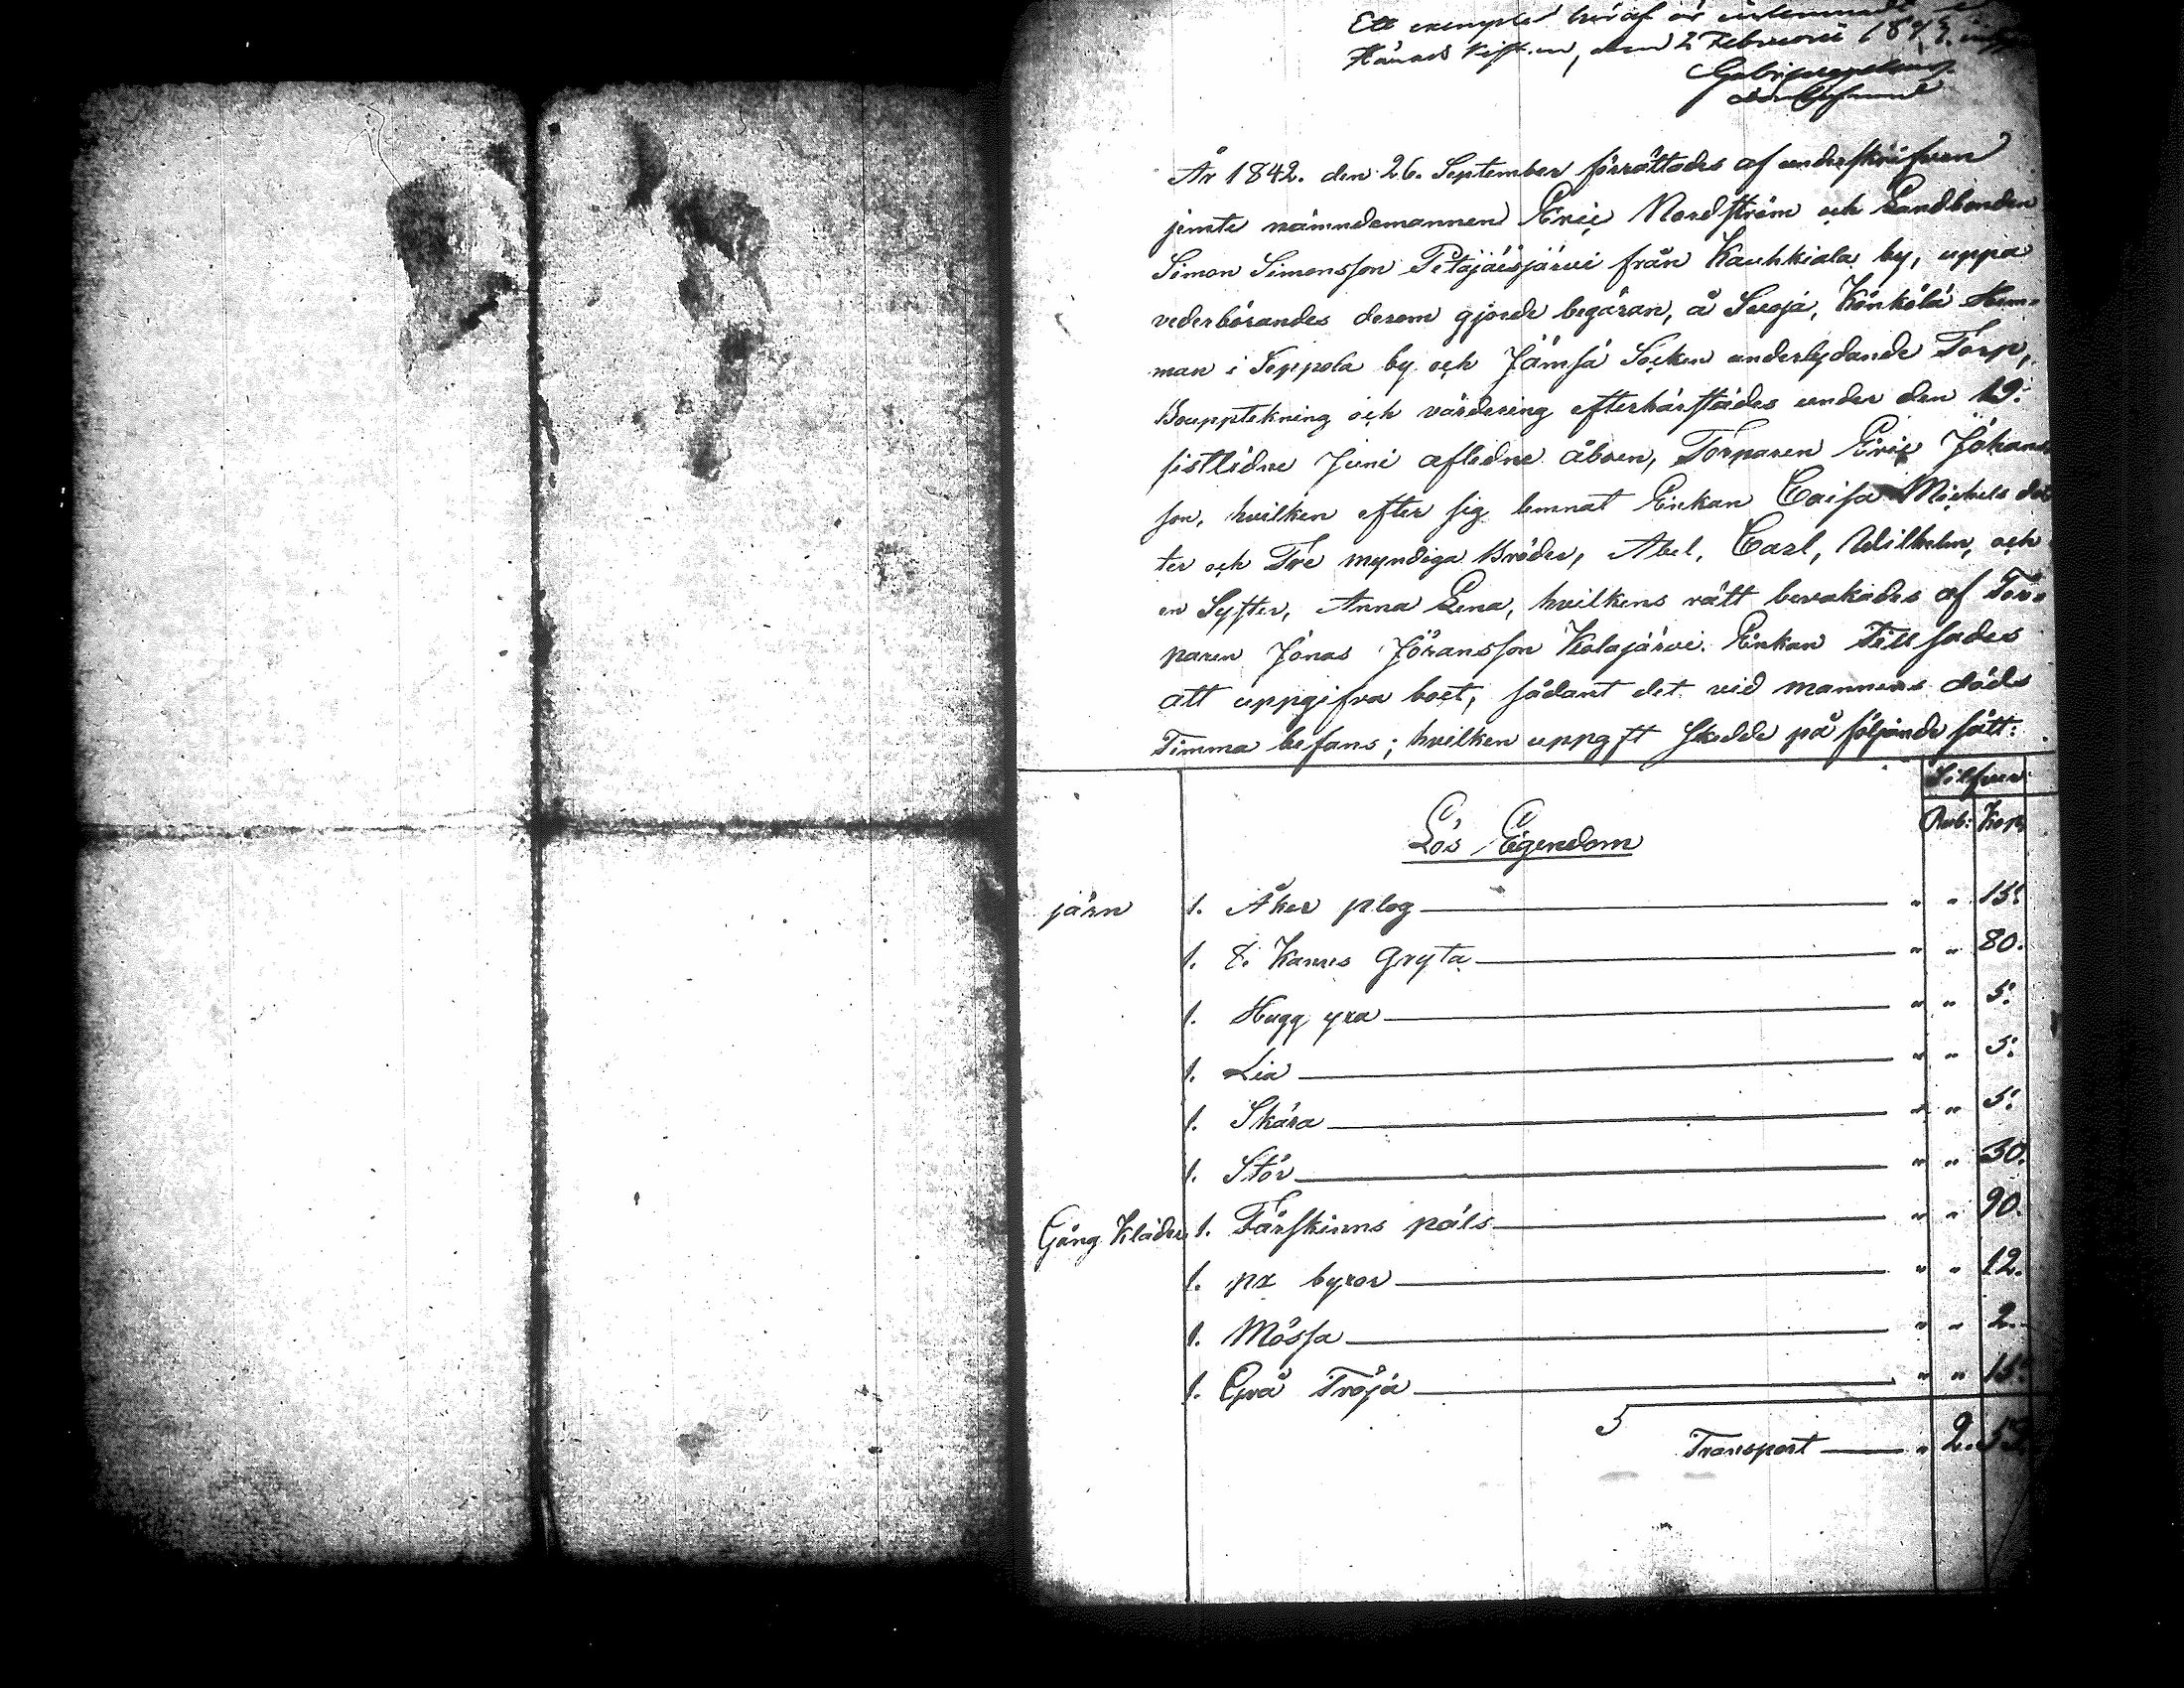 Ett exemplar häraf är inlemnadt
Härads kista, den 2 Februari 1843.
År 1842. den 26. September förrättades af underskrifven
jemte nämndemannen Eric Nordström och Landbonden
Simon Simonsson Petäjäisjärvi från Kauhkiala by, uppå
vederbörandes derom gjorde begäran, å Seroja, Könkölä Hem-
man i Seppola by och Jämsä Socken underlydande Torp,
Bouppteckning och värdering efter härstädes under den 19:
sistlidne Juni aflidne åboen, Torparen Eric Johans
son, hvilken efter sig lemnat Enkan Caisa Michels dot
ter och Tre myndiga Bröder, Abel, Carl, Wilhelm, och
en Syster, Anna Lena, hvilkens rätt bevakades af Tor-
paren Jonas Jöransson Kolajärvi. Enkan Tillsades
att uppgifva boet, sådant det vid mannens döds
Timma befans; hvilken uppgift skedde på följande sätt:
Silfver
Rub: Kop.
Lös Egendom
järn 1. Åker plog " " 15:
1. 8. Kanns Gryta " " 80.
1. Hugg yxa " " 5:
1. Lia " " 5:
1. Skära " " 5:
1. Stör " " 30.
Gång Kläder 1. Fårskinns päls " " 90.
1. pr byxor " " 12.
1. Mössa " " 2.
1. Grå Tröja " " 15:
Transport " 2. 55